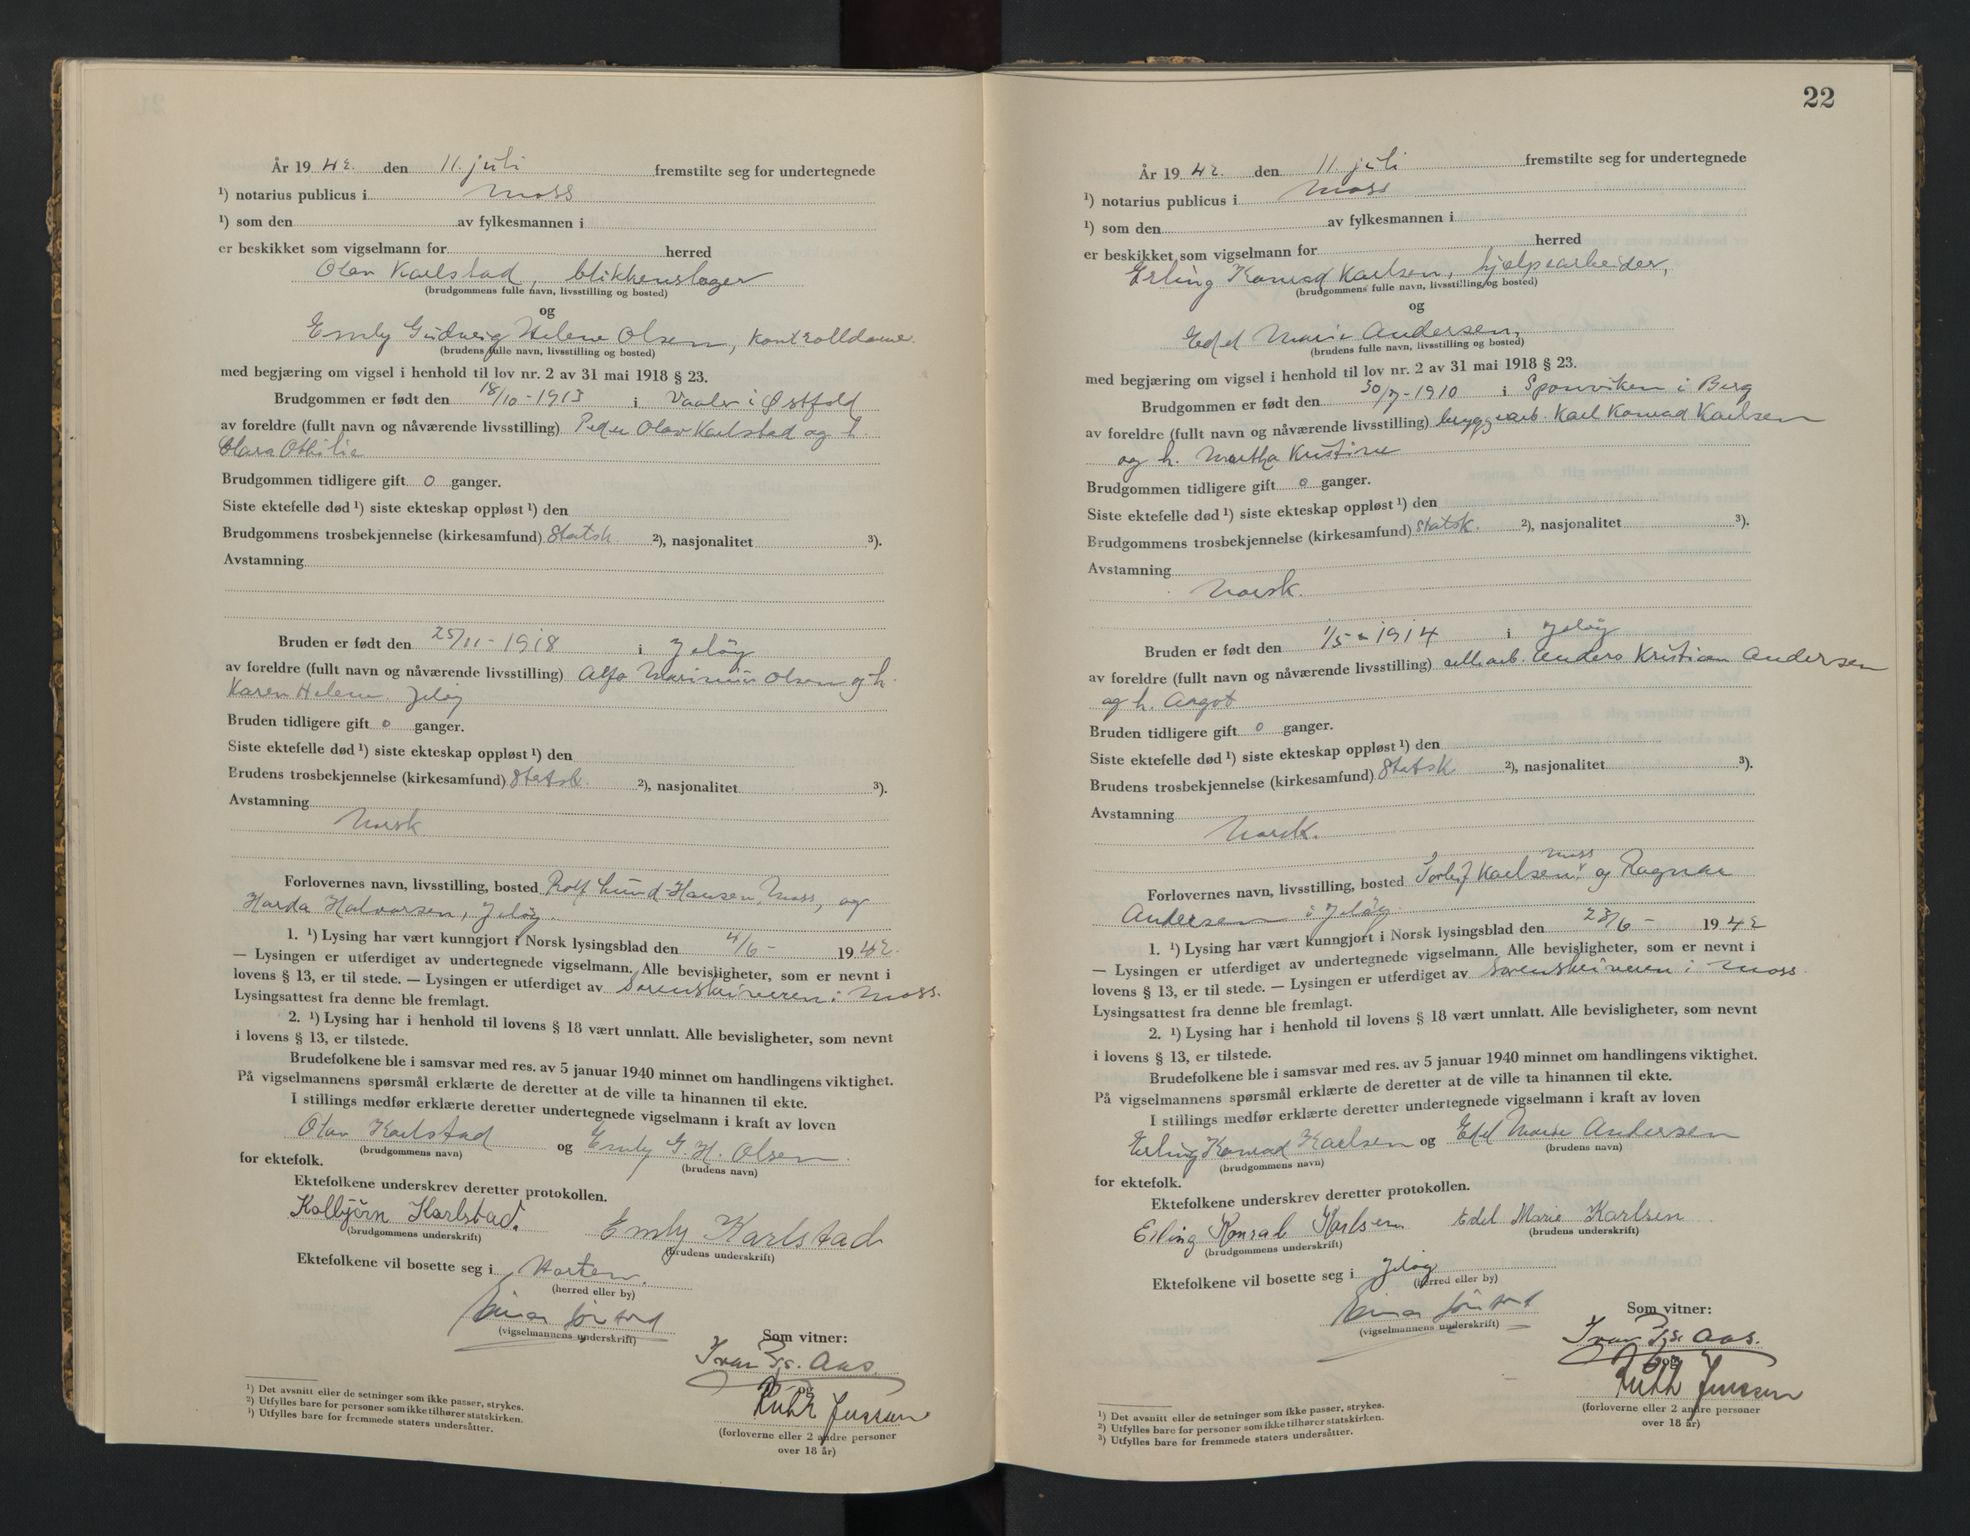 År 1942. den 11. juli fremstilte seg for undertegnede
¹) notarius publicus i Moss
¹) som den av fylkesmannen i
er beskikket som vigselmann for herred
Olav Karlstad, blikkenslager
(brudgommens fulle navn, livsstilling og bosted)
og
Emly Gudveig Helene Olsen, kontrolldame.
(brudens fulle navn, livsstilling og bosted)
med begjæring om vigsel i henhold til lov nr. 2 av 31 mai 1918 § 23.
Brudgommen er født den 18/10-1913 i Vaaler i Østfold
av foreldre (fullt navn og nåværende livsstilling) Peder Olav Karlstad og h.
Clara Othilie
Brudgommen tidligere gift 0 ganger.
Siste ektefelle død ¹) siste ekteskap oppløst ¹) den
Brudgommens trosbekjennelse (kirkesamfund) Statsk. ²), nasjonalitet ³).
Avstamning
Bruden er født den 25/11-1918 i Jeløy
av foreldre (fullt navn og nåværende livsstilling) Alfo Marinius Olsen og h.
Karen Helene. Jeløy
Bruden tidligere gift 0 ganger.
Siste ektefelle død ¹) siste ekteskap oppløst ¹) den
Brudens trosbekjennelse (kirkesamfund) Statsk. ²), nasjonalitet ³).
Avstamning
Norsk
Forlovernes navn, livsstilling, bosted Rolf Lund-Hansen, Moss, og
Harda Halvorsen, Jeløy.
1. ¹) Lysing har vært kunngjort i Norsk lysingsblad den 4/6- 1942.
— Lysingen er utferdiget av undertegnede vigselmann. Alle bevisligheter, som er nevnt i
lovens § 13, er til stede. — Lysingen er utferdiget av Sorenskriveren i Moss.
Lysingsattest fra denne ble fremlagt.
2. ¹) Lysing har i henhold til lovens § 18 vært unnlatt. Alle bevisligheter, som nevnt
i lovens § 13, er tilstede.
Brudefolkene ble i samsvar med res. av 5 januar 1940 minnet om handlingens viktighet.
På vigselmannens spørsmål erklærte de deretter at de ville ta hinannen til ekte.
I stillings medfør erklærte deretter undertegnede vigselmann i kraft av loven
Olav Karlstad og Emly G. H. Olsen
(brudgommens navn) (brudens navn)
for ektefolk.
Ektefolkene underskrev deretter protokollen.
Kolbjørn Karlstad. Emly Karlstad
(brudgommens underskrift) (brudens underskrift)
Ektefolkene vil bosette seg i Horten.
(herred eller by)
Einar
(vigselmannens underskrift)
Som vitner:
Ivar Aas.
og
Ruth Jenssen
(forloverne eller 2 andre personer
over 18 år)
¹) Det avsnitt eller de setninger som ikke passer, strykes.
²) Utfylles bare for personer som ikke tilhører statskirken.
³) Utfylles bare for fremmede staters undersåtter.
22
År 1942. den 11. juli fremstilte seg for undertegnede
¹) notarius publicus i Moss
¹) som den av fylkesmannen i
er beskikket som vigselmann for herred
Erling Konrad Karlsen, hjelpearbeider,
(brudgommens fulle navn, livsstilling og bosted)
og
Edel Marie Andersen,
(brudens fulle navn, livsstilling og bosted)
med begjæring om vigsel i henhold til lov nr. 2 av 31 mai 1918 § 23.
Brudgommen er født den 30/7-1910 i Sponviken i Berg
av foreldre (fullt navn og nåværende livsstilling) bryggearb. Karl Konrad Karlsen
og h. Martha Kristine
Brudgommen tidligere gift 0 ganger.
Siste ektefelle død ¹) siste ekteskap oppløst ¹) den
Brudgommens trosbekjennelse (kirkesamfund) Statsk. ²), nasjonalitet ³).
Avstamning
Norsk.
Bruden er født den 1/5-1914 i Jeløy
av foreldre (fullt navn og nåværende livsstilling) cell.arb. Anders Kristian Andersen
og h. Aagot
Bruden tidligere gift 0 ganger.
Siste ektefelle død ¹) siste ekteskap oppløst ¹) den
Brudens trosbekjennelse (kirkesamfund) Statsk ²), nasjonalitet ³).
Avstamning
Norsk.
Moss
Forlovernes navn, livsstilling, bosted Torleif Karlsen, og Ragnar
Andersen i Jeløy.
1. ¹) Lysing har vært kunngjort i Norsk lysingsblad den 23/6- 1942
— Lysingen er utferdiget av undertegnede vigselmann. Alle bevisligheter, som er nevnt i
lovens § 13, er til stede. — Lysingen er utferdiget av Sorenskriveren i Moss.
Lysingsattest fra denne ble fremlagt.
2. ¹) Lysing har i henhold til lovens § 18 vært unnlatt. Alle bevisligheter, som nevnt
i lovens § 13, er tilstede.
Brudefolkene ble i samsvar med res. av 5 januar 1940 minnet om handlingens viktighet.
På vigselmannens spørsmål erklærte de deretter at de ville ta hinannen til ekte.
I stillings medfør erklærte deretter undertegnede vigselmann i kraft av loven
Erling Konrad Karlsen og Edel Marie Andersen
(brudgommens navn) (brudens navn)
for ektefolk.
Ektefolkene underskrev deretter protokollen.
Erling Konrad Karlsen Edel Marie Karlsen
(brudgommens underskrift) (brudens underskrift)
Ektefolkene vil bosette seg i Jeløy
(herred eller by)
Einar
(vigselmannens underskrift)
Som vitner:
Ivar Aas.
og
Ruth Jenssen
(forloverne eller 2 andre personer
over 18 år)
¹) Det avsnitt eller de setninger som ikke passer, strykes.
²) Utfylles bare for personer som ikke tilhører statskirken.
³) Utfylles bare for fremmede staters undersåtter.